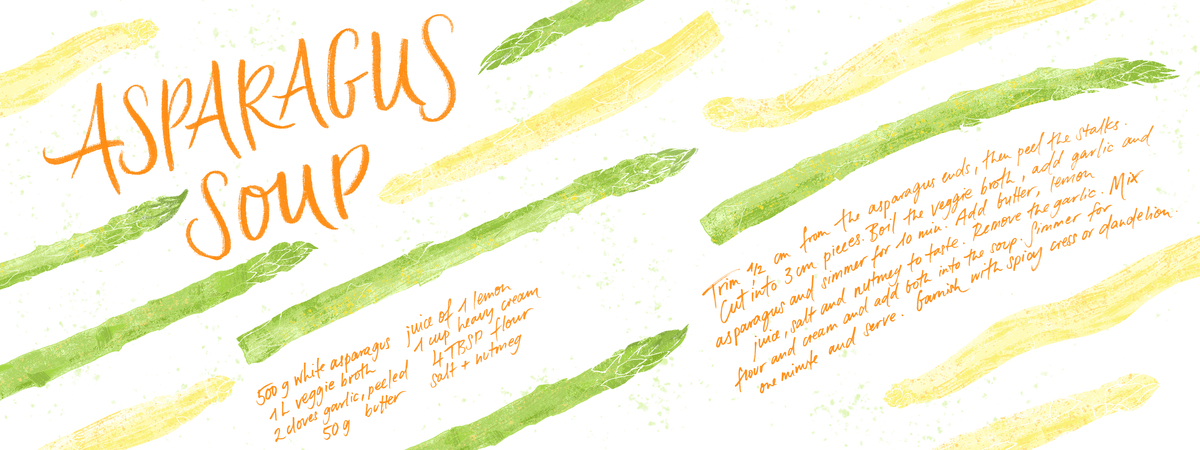 ASPARAGUS
SOUP
500 g white asparagus
1 L veggie broth
2 cloves garlic, peeled
50 g butter
juice of 1 lemon
1 cup heavy cream
4 TBSP flour
salt + nutmeg
Trim 1/2 cm from the asparagus ends, then peel the stalks.
Cut into 3 cm pieces. Boil the veggie broth, add garlic and
asparagus and simmer for 10 min. Add butter, lemon
juice, salt and nutmeg to taste. Remove the garlic. Mix
flour and cream and add both into the soup. Simmer for
one minute and serve. Garnish with spicy cress or dandelion.